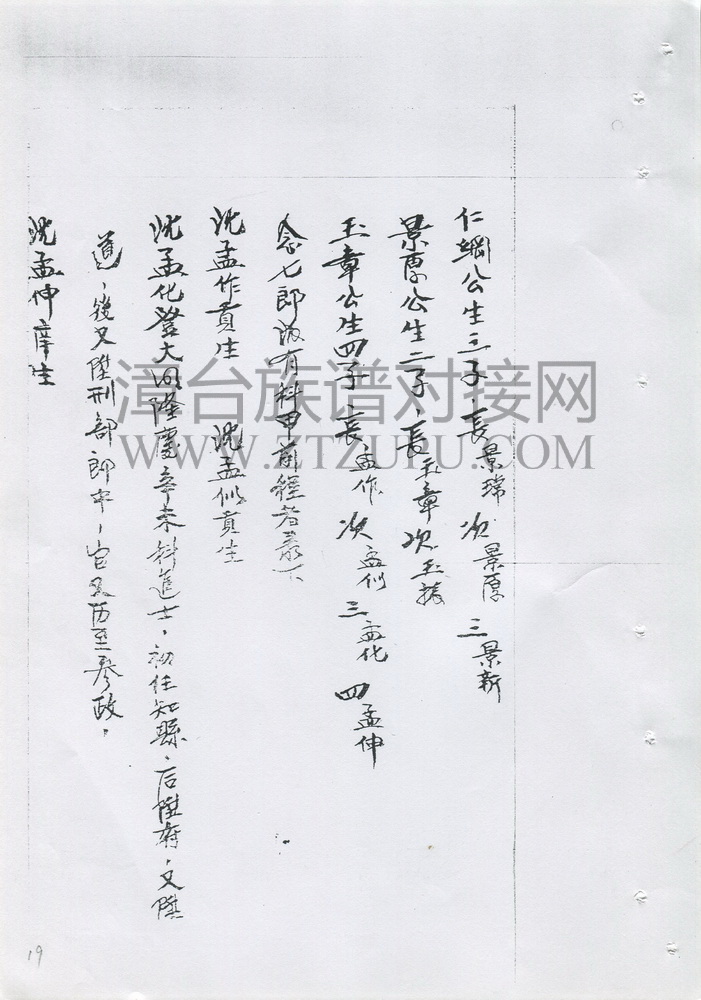 仁綱公生三子，長景瑞 次景厚 三景新
景厚公生二子，長玉章 次玉振
玉章公生四子，長孟作 次孟似 三孟化 四孟伸
念七郎派有科甲前程者表下
沈孟作貢生 沈孟似貢生
沈孟化登大明隆慶辛未科進士，初任知縣，后陞府，又陞
道，後又陞刑部郎中，官又歷至參政。
沈孟伸庠生
漳台族谱对接网
WWW.ZTZUPU.COM
19